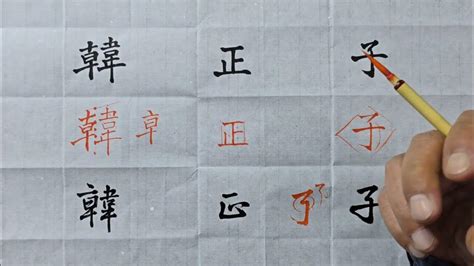 韓 正 子
韓 卓 正 子
韓 正 子